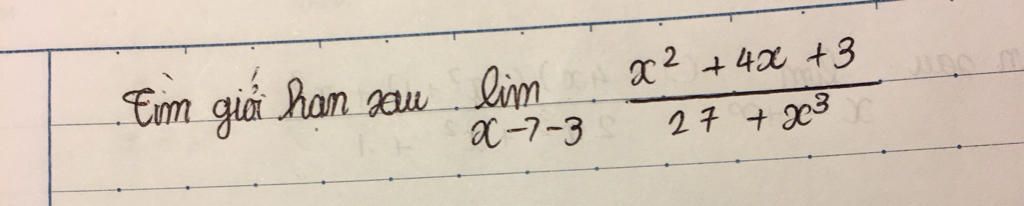 Tìm giới hạn sau lim x→-3 (x² + 4x + 3)/(27 + x³)